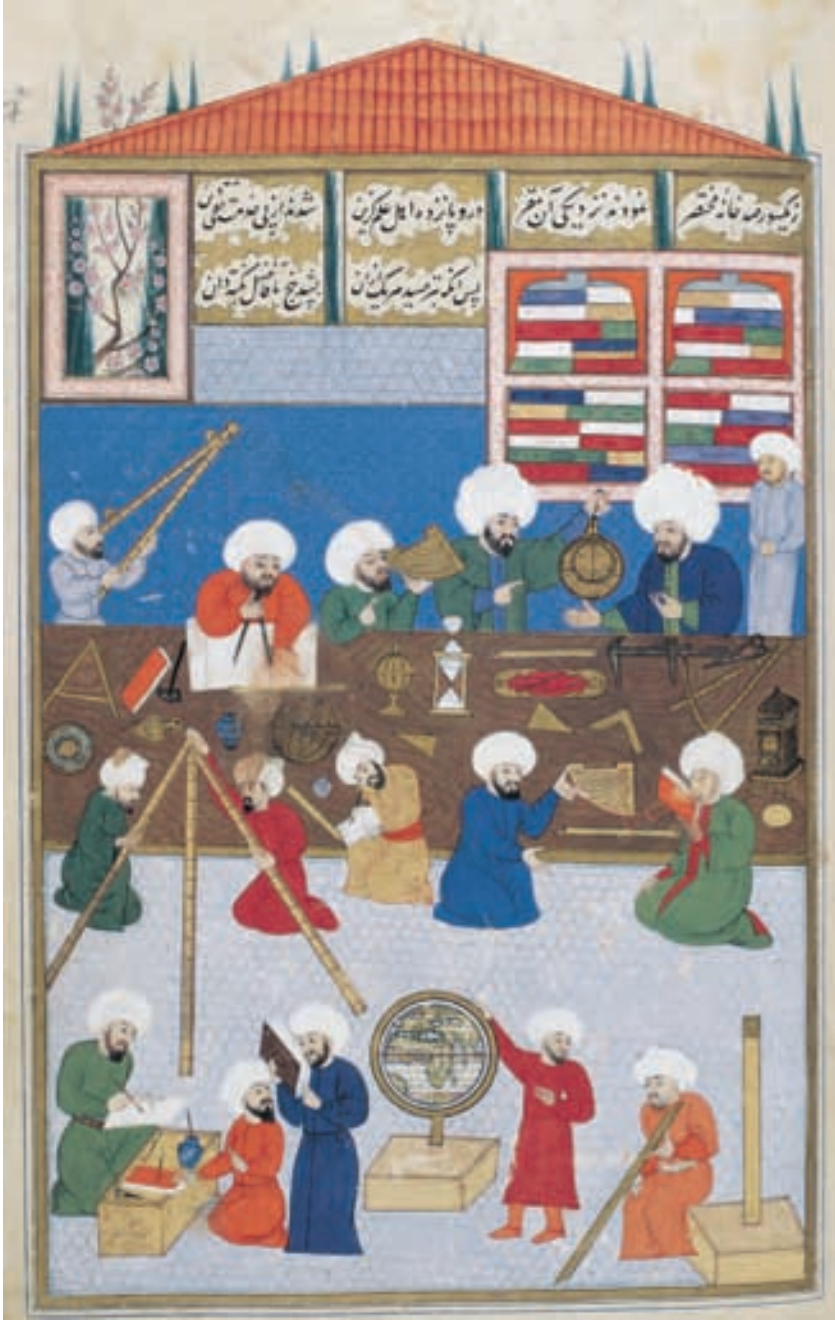 زیکسو رصد خانه مختصر نمودند نزدیکی آن مقر درو پانزده اهل علم گزین شدند از پی خدمت
پس انکه بترصید هر یک ازان بشد پنج تا فاضل نکته دان